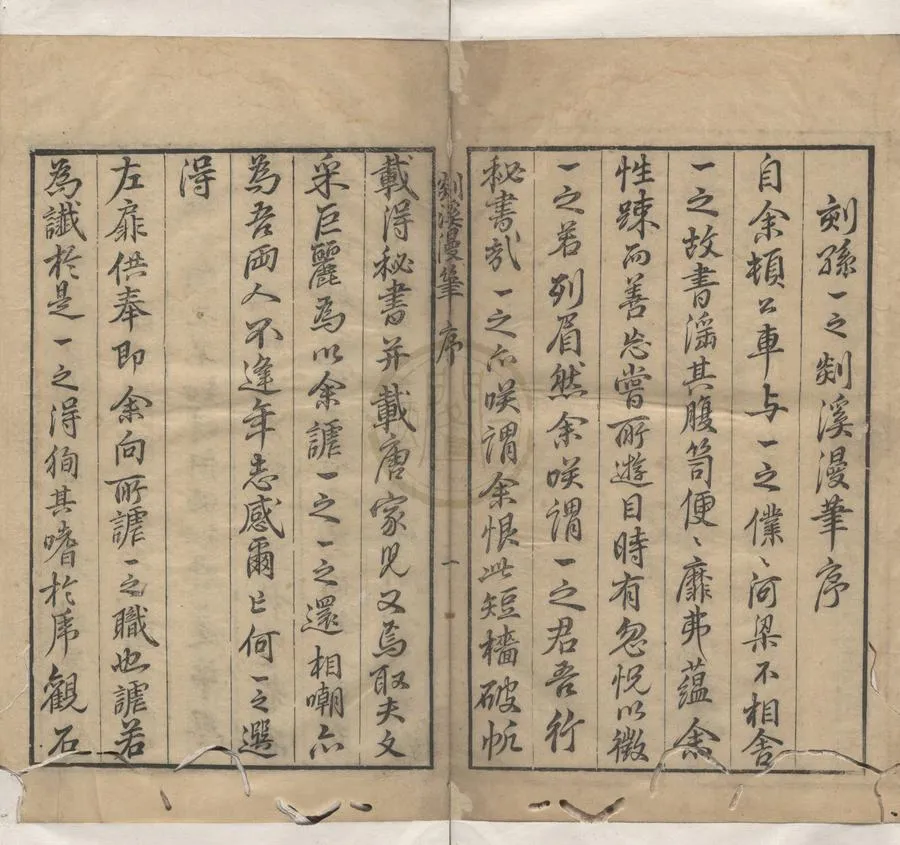 刻孫一之剡溪漫筆序
自余頓公車与一之儽〻河梁不相舍
一之故書滛其腹笥便〻靡弗蘊余
性踈而善忘嘗所遊目時有忽怳以徵
一之若列眉然余咲謂一之君吾行
秘書哉一之亦咲謂余恨此短檣破帆
剡溪漫筆 序 一
載得秘書并載唐家兒又焉取夫文
采巨麗為以余謔一之一之還相嘲亦
為吾兩人不逢年志感爾亡何一之選
得
左扉供奉即余向所謔一之職也謔若
為讖於是一之得徇其嗜於席觀石